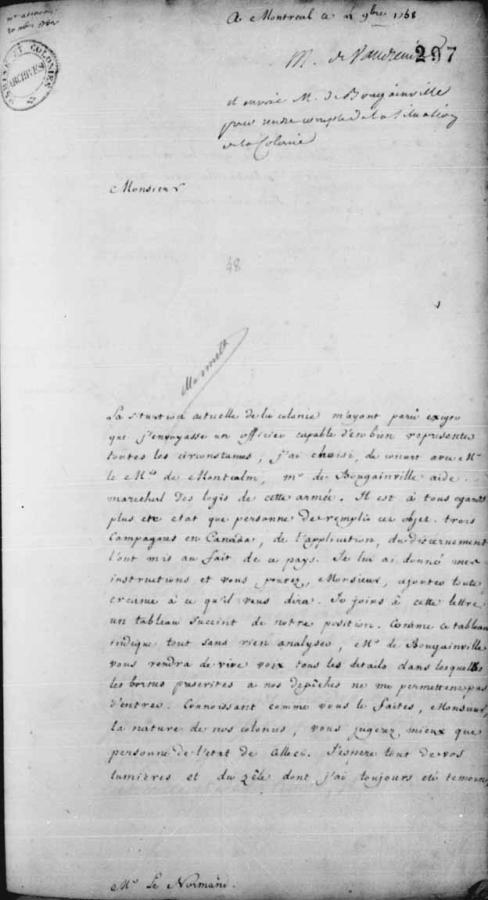 A Montreal le 4 9bre 1758
M. de Vaudreuil
297
ARCHIVES
COLONIES
et envoié M. de Bougainville
pour rendre compte de la situation
de la Colonie
Monsieur
La situation actuelle de la colonie m'ayant paru exiger
que j'envoyasse un officier capable d'en bien representer
toutes les circonstances, j'ai choisi, de concert avec Mr
le Mis de Montcalm, mr de Bougainville aide
marechal des logis de cette armée. Il est à tous egards
plus en etat que personne de remplir cet objet. trois
Campagnes en Canada, de l'application, du discernement
l'ont mis au fait de ce pays. Je lui ai donné mes
instructions et vous pouvez, Monsieur, ajouter toute
creance à ce qu'il vous dira. Je joins à cette lettre
un tableau succint de notre position. Comme ce tableau
indique tout sans rien analyser, Mr de Bougainville
vous rendra de vive voix tous les details dans lesquels
les bornes prescrites a nos depêches ne me permettent pas
d'entrer. Connoissant comme vous le faites, Monsieur,
la nature de nos colonies, vous jugerez mieux que
personne de l'etat de celle ci. J'espere tout de vos
lumières et du zêle dont j'ai toujours eté temoin,
Mr Le Normand.